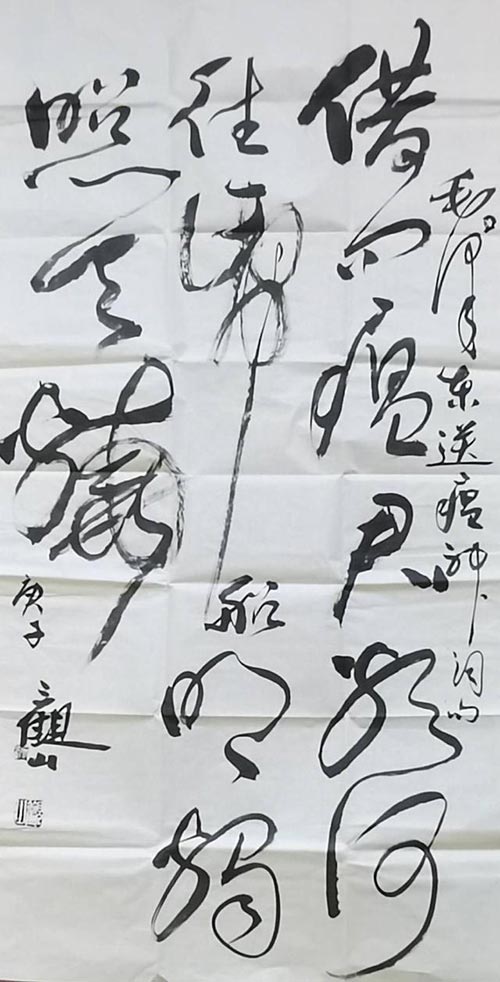 毛泽东送瘟神词句
借问瘟君欲何
往纸船明烛
照天烧
庚子
觀山